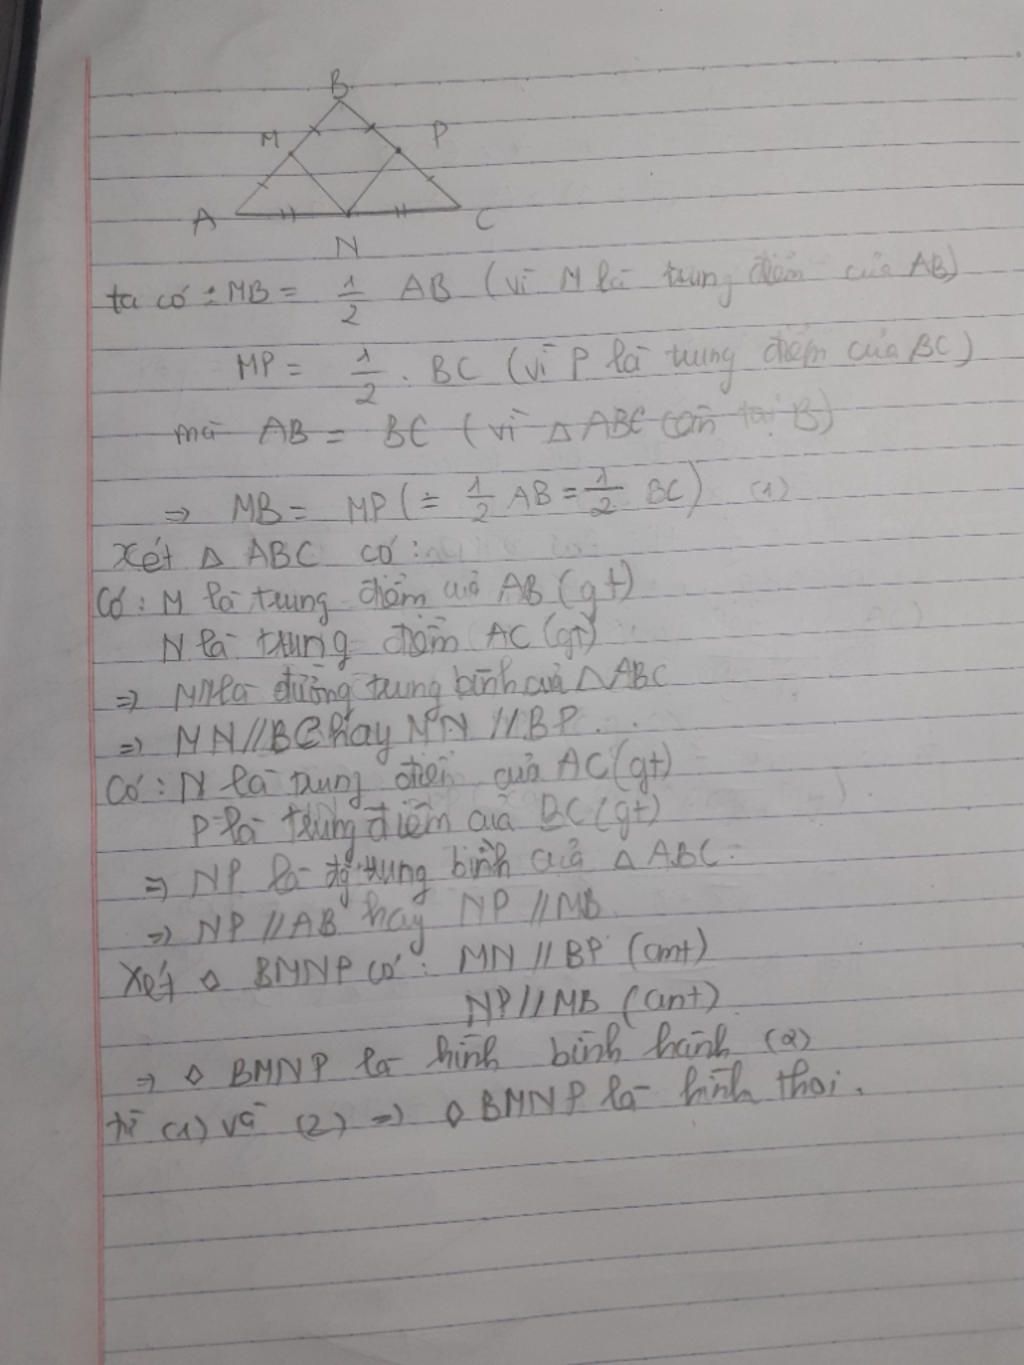 B
M
P
A
C
N
ta có: MB = 1/2 AB (vì M là trung điểm của AB)
MP = 1/2 . BC (vì P là trung điểm của BC)
mà AB = BC (vì △ABC cân tại B)
=> MB = MP (= 1/2 AB = 1/2 BC) (1)
Xét △ ABC có:
Có: M là trung điểm của AB (gt)
N là trung điểm AC (gt)
=> MN là đường trung bình của △ABC
=> MN//BC hay MN //BP
Có: N là trung điểm của AC (gt)
P là trung điểm của BC (gt)
=> NP là đg trung bình của △ABC.
=> NP //AB hay NP //MB
Xét ◇ BMNP có: MN // BP (cmt)
NP//MB (cmt)
=> ◇ BMNP là hình bình hành (2)
từ (1) và (2) => ◇ BMNP là hình thoi.